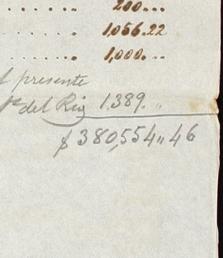 200...
1,056.22
1,000...
presente
del Rig 1,389. "
$ 380,554 " 46